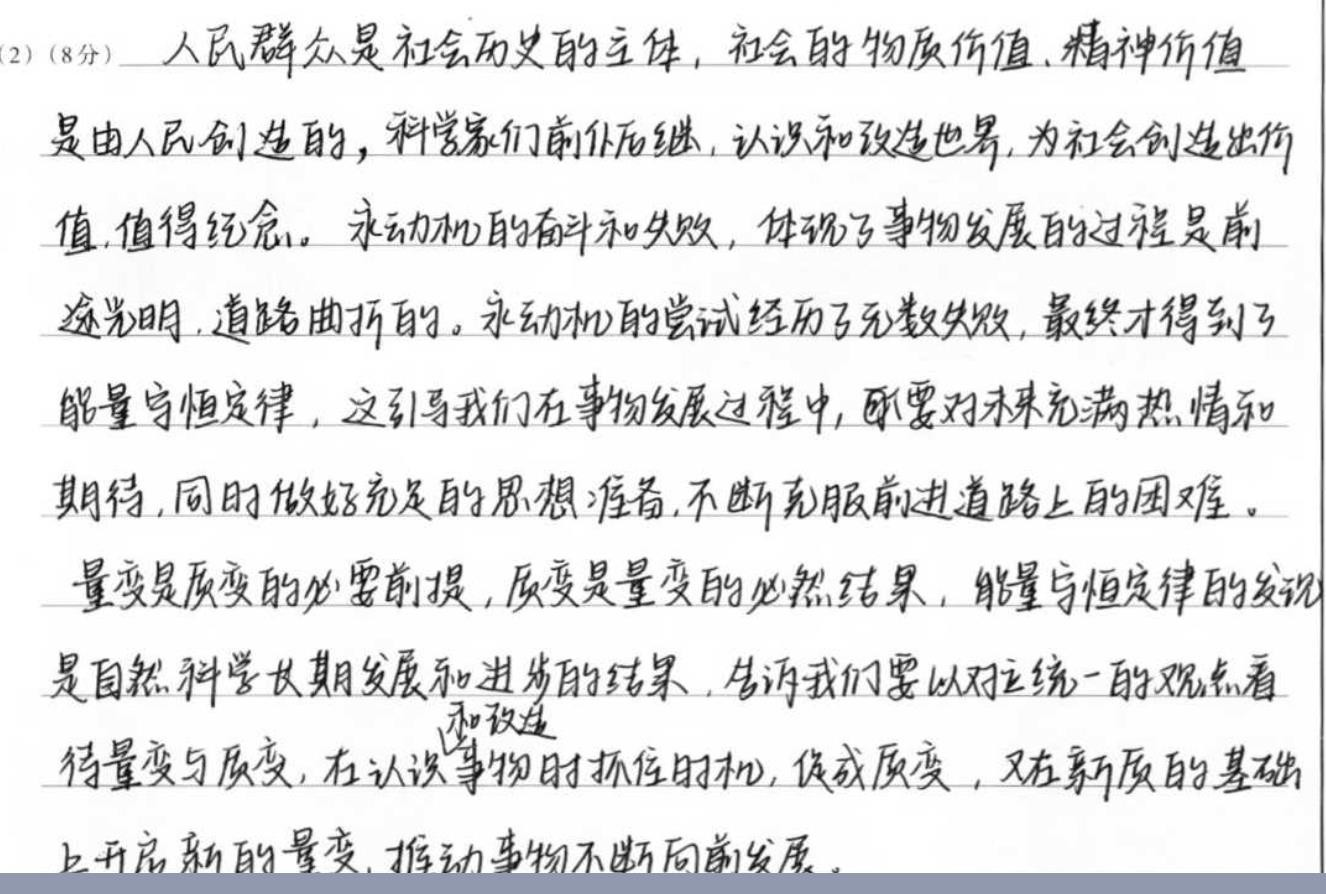 (2)(8分) 人民群众是社会历史的主体，社会的物质价值、精神价值
是由人民创造的，科学家们前仆后继，认识和改造世界，为社会创造出价
值，值得纪念。永动机的奋斗和失败，体现了事物发展的过程是前
途光明，道路曲折的。永动机的尝试经历了无数失败，最终才得到了
能量守恒定律，这引导我们在事物发展过程中，要对未来充满热情和
期待，同时做好充足的思想准备，不断克服前进道路上的困难。
量变是质变的必要前提，质变是量变的必然结果，能量守恒定律的发现
是自然科学长期发展和进步的结果，告诉我们要以对立统一的观点看
待量变与质变，在认识和改造事物时抓住时机，促成质变，又在新质的基础
上开启新的量变，推动事物不断向前发展。